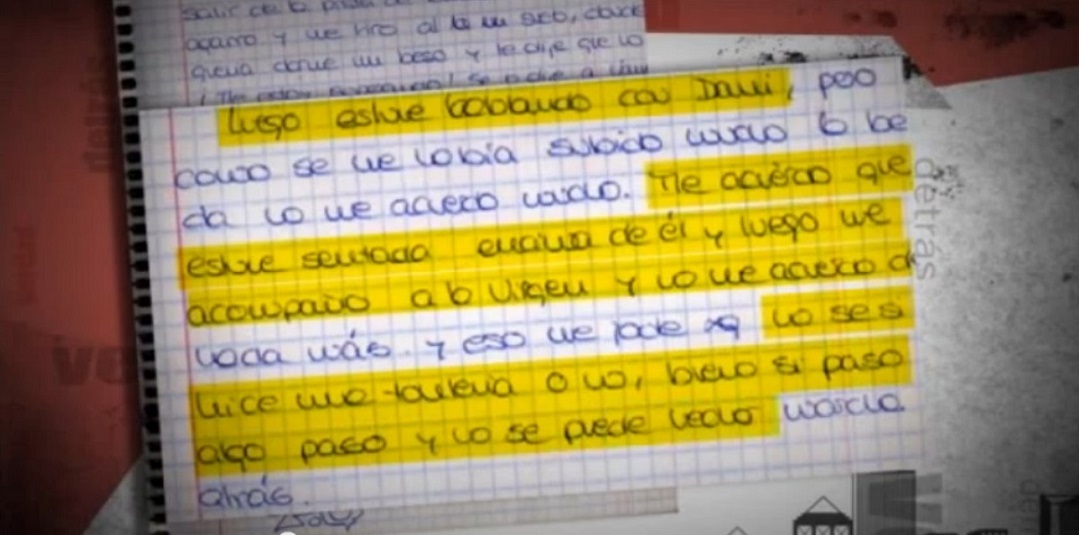 agarro y me tiro al
queria darme un beso y le dije que no
luego estuve hablando con Dani, pero
como se me habia subido mucho lo be
da no me acuerdo mucho. Me acuerdo que
estuve sentada encima de él y luego me
acompaño a la Virgen y no me acuerdo d
nada más. y eso me jode xq no se si
hice una tonteria o no, bueno si paso
algo paso y no se puede hechar marcha
atrás.
detrás
ve